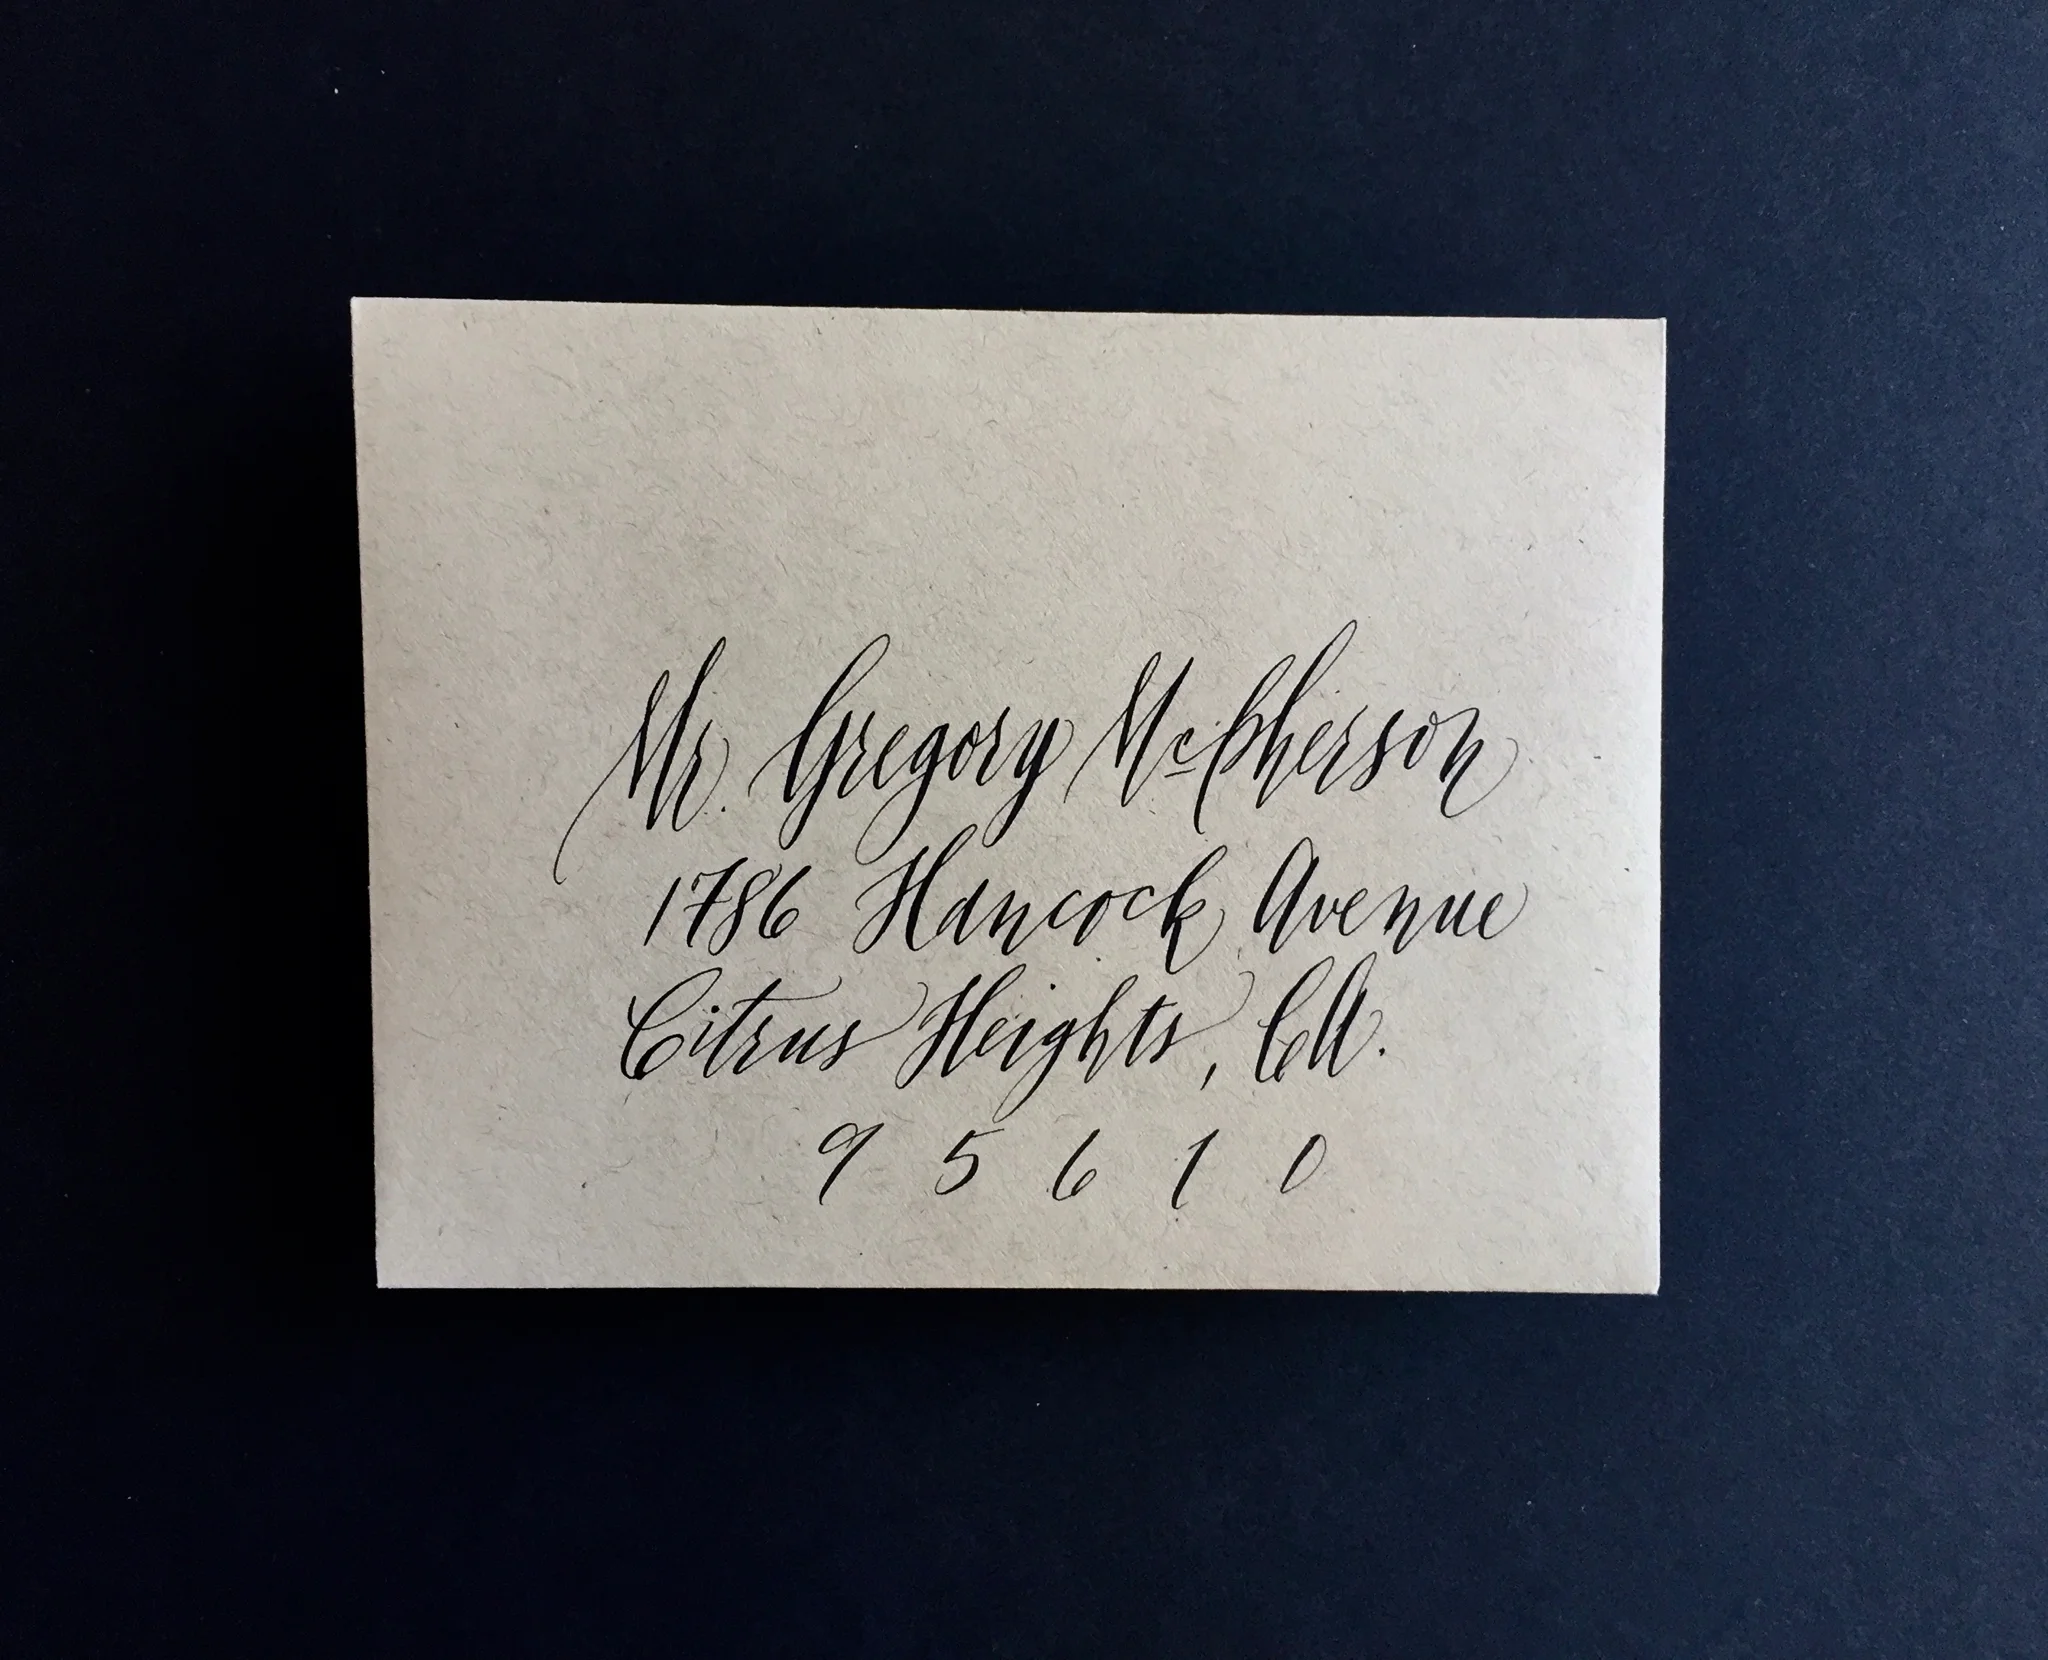 Mr. Gregory McPherson
1786 Hancock Avenue
Citrus Heights, CA.
95610